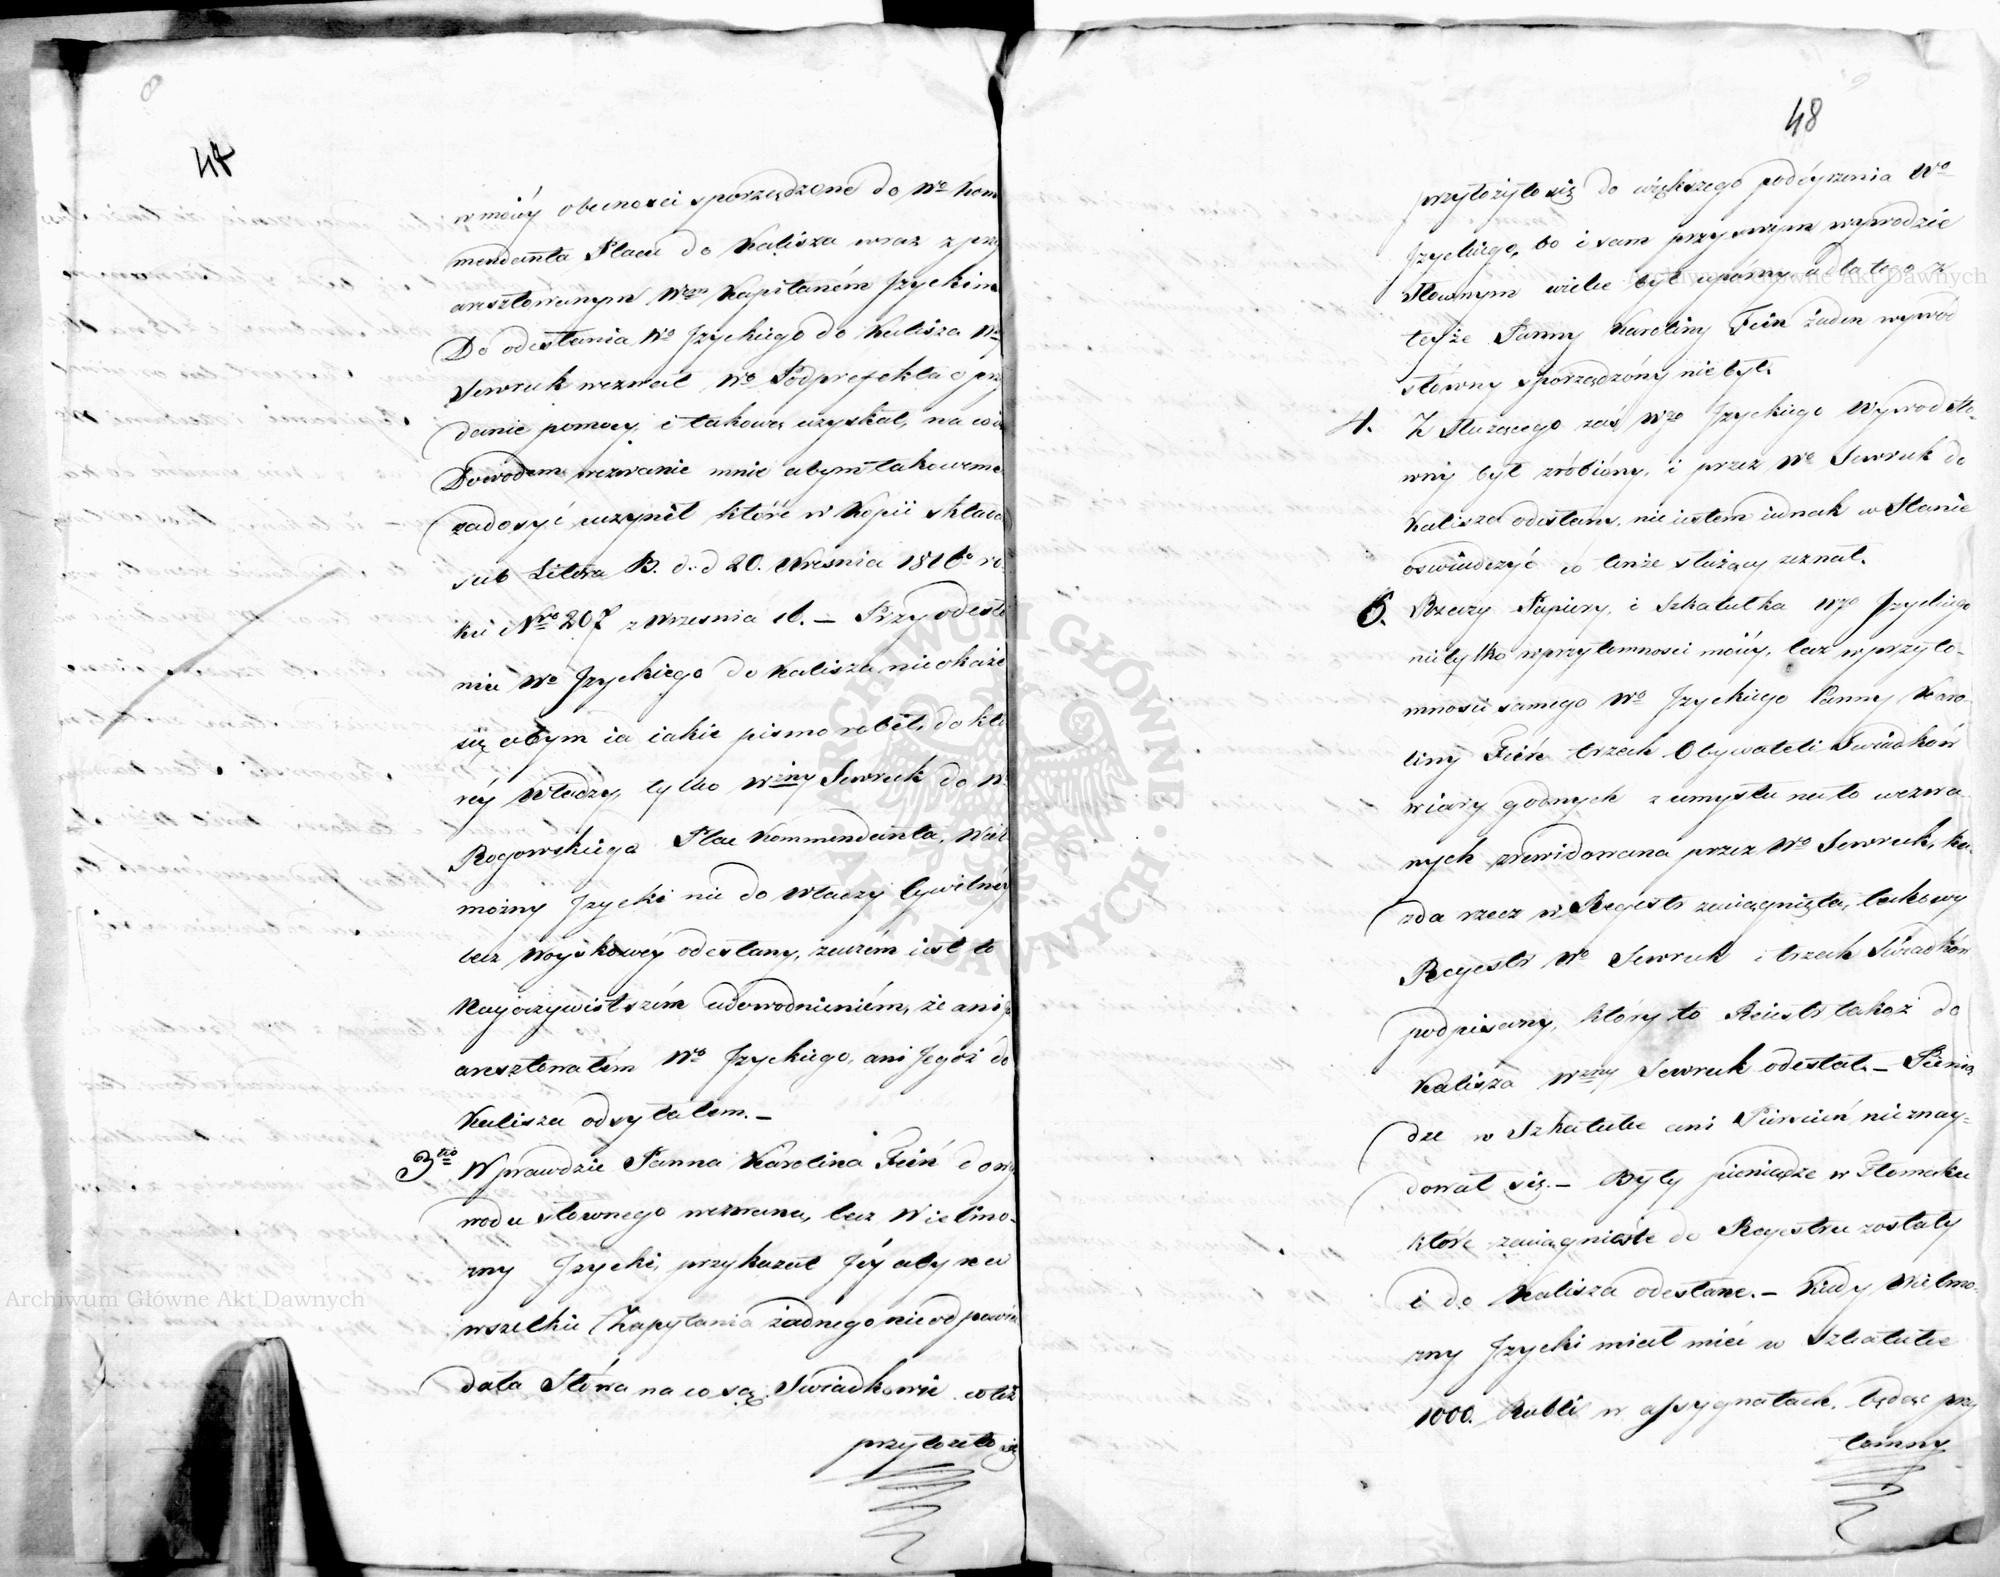 47
w moiéy obecnosci sporządzone do Wo Kom
mendanta Placu do Kalisza wraz z przy
aresztowanym Wym Kapitaném Jzyckim
Do odesłania Wo Jzyckiego do Kalisza Wny
Sewruk wezwał Wo Podprefekta o przy
danie pomocy i takową uzyskał, na co iest
Dowodem wezwanie mnie abym takowemu
zadosyć uczynił które w Kopii składa
sub Litera B. d. d 20. Wresnia 1810 ro
ku Nro 207 z Wrzesnia 10. — Przy odesła
niu Wo Jzyckiego do Kalisza nie okaże
się abym ia iakie pismo robił, do któ
réy Władzy tylko Wzny Sewruk do W
Rogowskiego Plac Kommendanta, Wiel
możny Jzycki nie do Władzy Cywilnéy
lecz Woyskowéy odesłany, zaczém iest to
Nayoczywistszém udowodnieniém, że ani ja
aresztowałém Wo Jzyckiego, ani Jegoż do
Kalisza odsyłałem. —
3tio Wprawdzie Panna Karolina Fein do wy
wodu słownego wezwana, lecz Wielmo-
zny Jzycki, przykazał Jéy aby na
wszelkie Zapytania żadnego nie odpowie
dała Słowa na co są Swiadkowie co też
przyłożyło się
48
przyłożyło się do większego podéyrzenia Wo
Jzyckiego, bo i sam przy swym wywodzie
Słownym wiele był uparny a dla tego z
teyże Panny Karoliny Fein żaden wywód
słówny sporządzóny nie był.
4. Z Służącego zaś Wgo Jzyckiego Wywod Sło-
wny był zróbióny, i przez Wo Sewruk do
Kalisza odesłany, nie iestem iednak w Stanie
oswiadczyć co tenże służący zeznał.
5. Rzeczy Papiery, i Szkatułka Wgo Jzyckiego
nietylko w przytomnosci moiéy, lecz w przyto-
mnosci samego Wo Jzyckiego Panny Karo-
liny Fein trzech Obywateli Swiadków
wiary godnych z umysłu na to wezwa
nych zrewidowana przez Wo Sewruk, ka-
żda rzecz w Regestr zaciągnięta, takowy
Regestr Wo Sewruk i trzech Swiadków
podpisany, który to Reiestr takoż do
Kalisza Wzny Sewruk odesłał. — Pienią
dze w Szkatułce ani Pierscień nie znay-
dował się. — Były pieniądze w Tłomoku
które zaciągnięte do Regestru zostały
i do Kalisza odesłane. — Kiedy Wielmo-
zny Jzycki miał mieć w Szkatułce
1000. Rubli w assygnatach, będąc przy
tomny